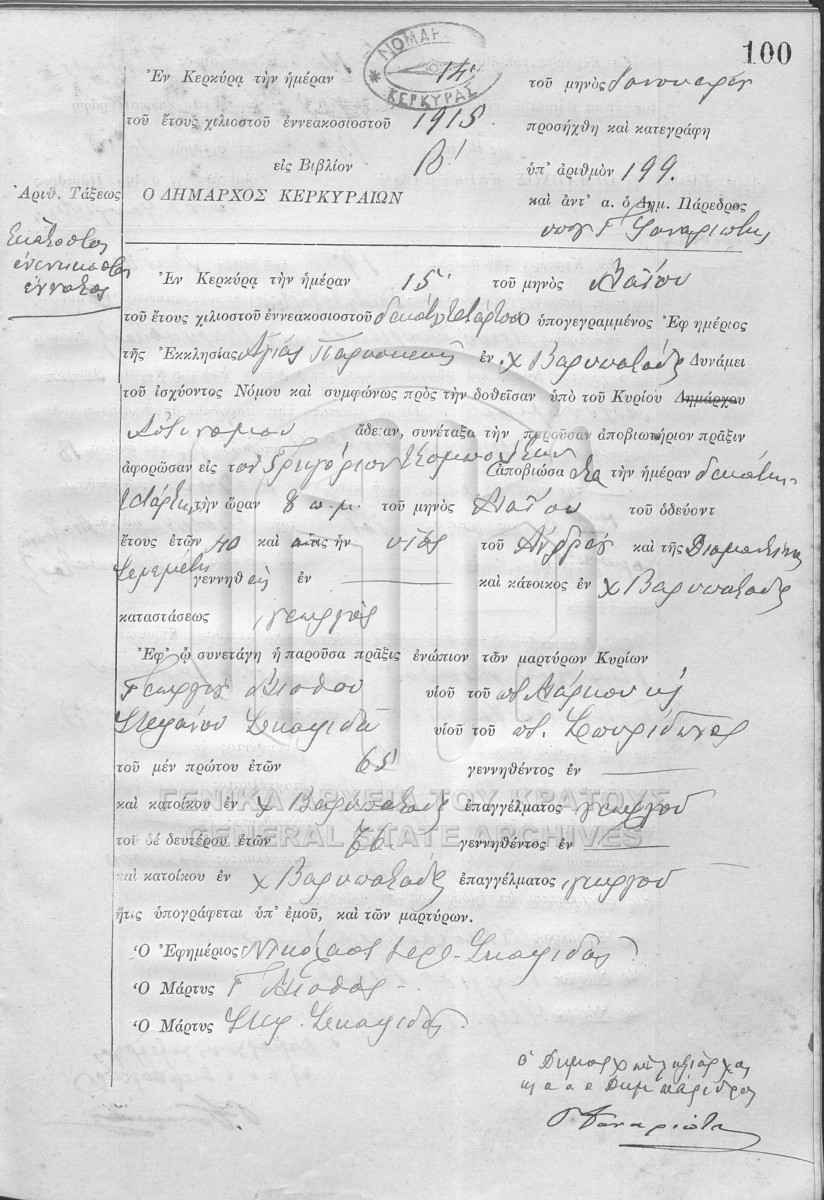 100
ΝΟΜΑΡ
ΚΕΡΚΥΡΑΣ
Ἐν Κερκύρᾳ τὴν ἡμέραν 14 τοῦ μηνὸς Ἰανουαρίου
τοῦ ἔτους χιλιοστοῦ ἐννεακοσιοστοῦ 1915 προσήχθη καὶ κατεγράφη
εἰς Βιβλίον Β' ὑπ' ἀριθμὸν 199.
Ἀριθ. Τάξεως Ο ΔΗΜΑΡΧΟΣ ΚΕΡΚΥΡΑΙΩΝ καὶ ἀντ' α. ὁ Δημ. Πάρεδρος
Ἑκατοστὸς
ἐνενηκοστὸς
ἔννατος
Ἐν Κερκύρᾳ τὴν ἡμέραν 15 τοῦ μηνὸς Μαΐου
τοῦ ἔτους χιλιοστοῦ ἐννεακοσιοστοῦ δεκάτου τετάρτου Ὁ ὑπογεγραμμένος Ἐφημέριος
τῆς Ἐκκλησίας Ἁγίας Παρασκευῆς ἐν χ Βαρυπατάδες Δυνάμει
τοῦ ἰσχύοντος Νόμου καὶ συμφώνως πρὸς τὴν δοθεῖσαν ὑπὸ τοῦ Κυρίου Δημάρχου
Ἀστυνόμου ἄδειαν, συνέταξα τὴν παροῦσαν ἀποβιωτήριον πρᾶξιν
ἀφορῶσαν εἰς τὸν Γρηγόριον ἀποβιώσαντα τὴν ἡμέραν δεκάτην
τετάρτην τὴν ὥραν 8 π.μ. τοῦ μηνὸς Μαΐου τοῦ ὁδεύοντ
ἔτους ἐτῶν 40 καὶ ἥτις ἦν υἱὸς τοῦ Ἀνδρέου καὶ τῆς Διαμαντίνας
γεννηθεὶς ἐν — καὶ κάτοικος ἐν χ Βαρυπατάδες
καταστάσεως γεωργὸς
Ἐφ' ᾧ συνετάγη ἡ παροῦσα πρᾶξις ἐνώπιον τῶν μαρτύρων Κυρίων
Γεωργίου υἱοῦ τοῦ ποτ. Μάρκου καὶ
Στεφάνου Σκαφιδᾶ υἱοῦ τοῦ ποτ. Σπυρίδωνος
τοῦ μέν πρώτου ἐτῶν 65 γεννηθέντος ἐν —
καὶ κατοίκου ἐν χ Βαρυπατάδες ἐπαγγέλματος γεωργοῦ
ΓΕΝΙΚΑ ΑΡΧΕΙΑ ΤΟΥ ΚΡΑΤΟΥΣ
GENERAL STATE ARCHIVES
τοῦ δέ δευτέρου ἐτῶν γεννηθέντος ἐν —
καὶ κατοίκου ἐν χ Βαρυπατάδες ἐπαγγέλματος γεωργοῦ
ἥτις ὑπογράφεται ὑπ' ἐμοῦ, καὶ τῶν μαρτύρων.
Ὁ Ἐφημέριος Νικόλαος Ἱερ. Σκαφιδᾶς
Ὁ Μάρτυς Γ
Ὁ Μάρτυς Στεφ. Σκαφιδᾶς